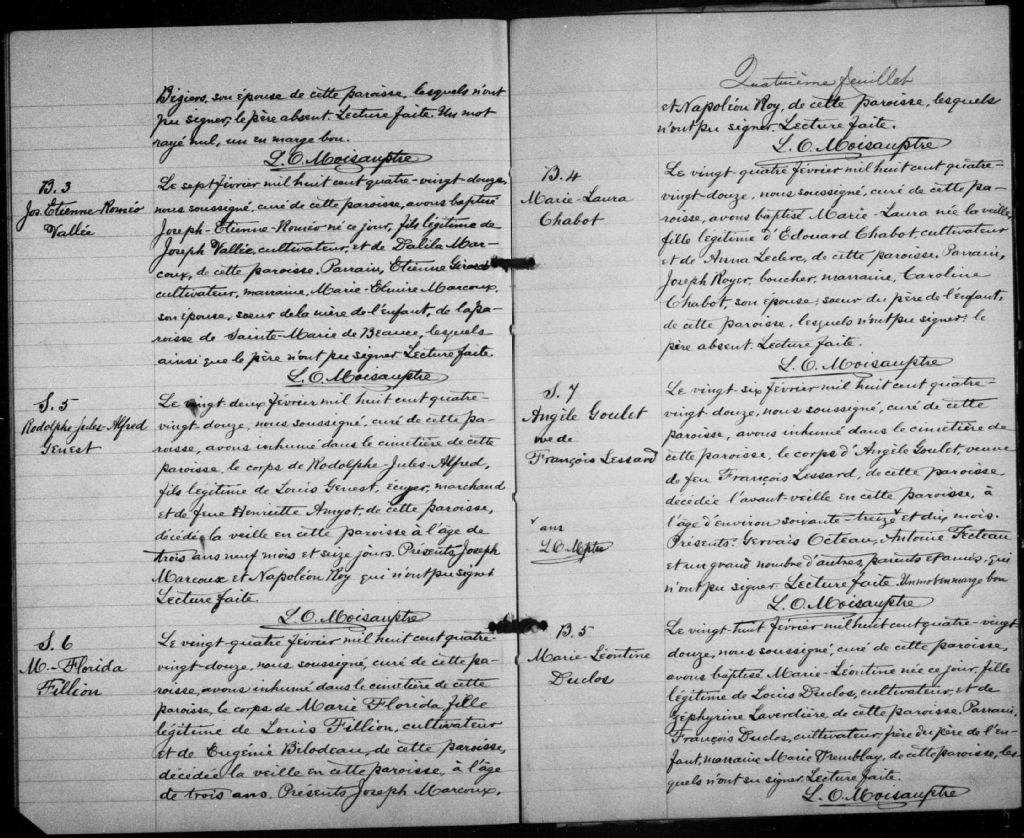 Bigiers, son épouse de cette paroisse, lesquels n'ont
pu signer, le père absent. Lecture faite. Un mot
rayé nul, un en marge bon.
L. O. Moisan ptre
B. 3
Jos. Etienne-Roméo
Vallée
Le sept février mil huit cent quatre-vingt-douze,
nous soussigné, curé de cette paroisse, avons baptisé
Joseph-Etienne-Roméo né ce jour, fils légitime de
Joseph Vallée, cultivateur, et de Dalila Mar-
coux, de cette paroisse. Parrain, Etienne Giroux
cultivateur, marraine, Marie-Elmire Marcoux,
son épouse, soeur de la mère de l'enfant, de la pa-
roisse de Sainte-Marie de Beauce, lesquels
ainsi que le père n'ont pu signer. Lecture faite.
L. O. Moisan ptre
S. 5
Rodolphe-Jules-Alfred
Genest
Le vingt deux février mil huit cent quatre-
vingt-douze, nous soussigné, curé de cette pa-
roisse, avons inhumé dans le cimetière de cette
paroisse, le corps de Rodolphe-Jules-Alfred,
fils légitime de Louis Genest, écuyer, marchand
et de feue Henriette Amyot, de cette paroisse,
décédé la veille en cette paroisse à l'âge de
trois ans neuf mois et seize jours. Présents, Joseph
Marcoux et Napoléon Roy qui n'ont pu signer
Lecture faite.
L. O. Moisan ptre
S. 6
M.-Florida
Fillion
Le vingt-quatre février mil huit cent quatre-
vingt-douze, nous soussigné, curé de cette pa-
roisse, avons inhumé dans le cimetière de cette
paroisse, le corps de Marie Florida, fille
légitime de Louis Fillion, cultivateur
et de Eugénie Bilodeau, de cette paroisse,
décédée la veille en cette paroisse, à l'âge
de trois ans. Présents Joseph Marcoux,
Quatrième feuillet
et Napoléon Roy, de cette paroisse, lesquels
n'ont pu signer. Lecture faite.
L. O. Moisan ptre
B. 4
Marie-Laura
Chabot
Le vingt-quatre février mil huit cent quatre-
vingt-douze, nous soussigné, curé de cette pa-
roisse, avons baptisé Marie-Laura née la veille,
fille légitime d'Edouard Chabot cultivateur
et de Anna Leclerc, de cette paroisse. Parrain,
Joseph Royer, boucher, marraine, Caroline
Chabot, son épouse, soeur du père de l'enfant,
de cette paroisse, lesquels n'ont pu signer, le
père absent. Lecture faite.
L. O. Moisan ptre
S. 7
Angèle Goulet
vve de
François Lessard
Le vingt six février mil huit cent quatre-
vingt-douze, nous soussigné, curé de cette
paroisse, avons inhumé dans le cimetière de
cette paroisse, le corps d'Angèle Goulet, veuve
de feu François Lessard, de cette paroisse
décédée l'avant-veille en cette paroisse, à
l'âge d'environ soixante-treize v et dix mois.
v ans
L O M ptre
Présents: Gervais Octeau, Antoine Fecteau
et un grand nombre d'autres, parents et amis, qui
n'ont pu signer. Lecture faite. Un mot en marge bon
L. O. Moisan ptre
B. 5
Marie-Léontine
Duclos
Le vingt-huit février mil huit cent quatre-vingt-
douze, nous soussigné, curé de cette paroisse,
avons baptisé Marie-Léontine née ce jour, fille
légitime de Louis Duclos, cultivateur, et de
Zéphyrine Laverdière, de cette paroisse. Parrain,
François Duclos, cultivateur, frère du père de l'en-
fant, marraine Marie Tremblay, de cette paroisse, les-
quels n'ont su signer. Lecture faite.
L. O. Moisan ptre